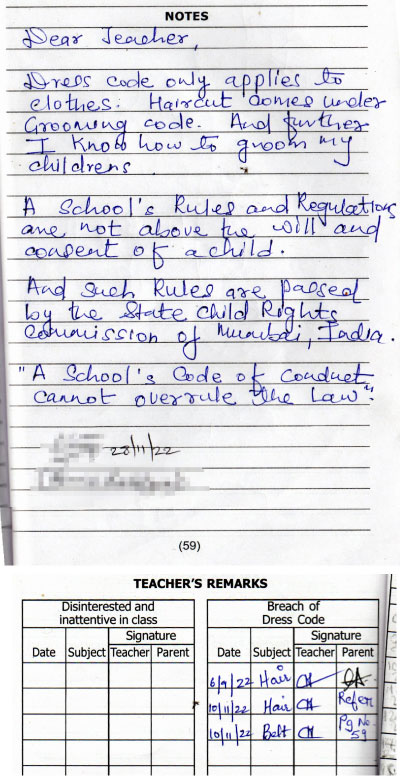 NOTES
Dear Teacher,
Dress code only applies to
clothes. Haircut comes under
Grooming code. And further
I know how to groom my
childrens
A School's Rules and Regulations
are not above the will and
consent of a child.
And such Rules are passed
by the State child Rights
Commission of Mumbai, India.
"A School's Code of Conduct
cannot overrule the Law".
28/11/22
(59)
TEACHER'S REMARKS
Disinterested and
inattentive in class
Date Subject Signature
Teacher Parent
Breach of
Dress Code
Date Subject Signature
Teacher Parent
6/9/22 Hair
10/11/22 Hair Refer
10/11/22 Belt Pg No
59